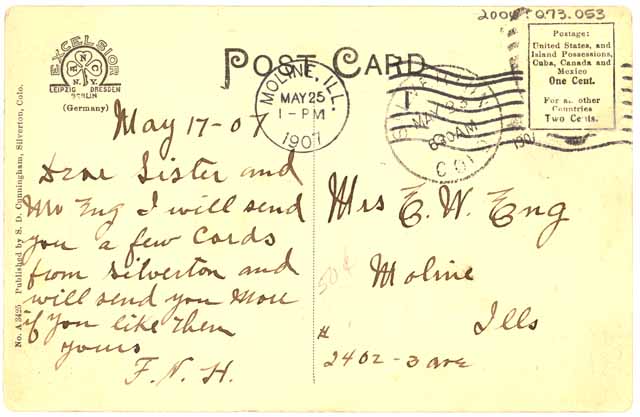 2004.073.053
EXCELSIOR
R N C N.Y.
LEIPZIG DRESDEN
BERLIN
(Germany)
POST CARD
MOLINE, ILL.
MAY 25
1-PM
1907
MAY 23
8 30 AM
COLO
1907
Postage:
United States, and
Island Possessions,
Cuba, Canada and
Mexico
One Cent.
For all other
Countries
Two Cents.
No. A 3425 Published by S. D. Cunningham, Silverton, Colo.
May 17-07
Dear Sister and
Mr Eng I will send
you a few Cards
from Silverton and
will send you More
if you like them
yours
F. N. H.
50¢
Mrs E. W. Eng
Moline
Ills
#
2402-3 ave